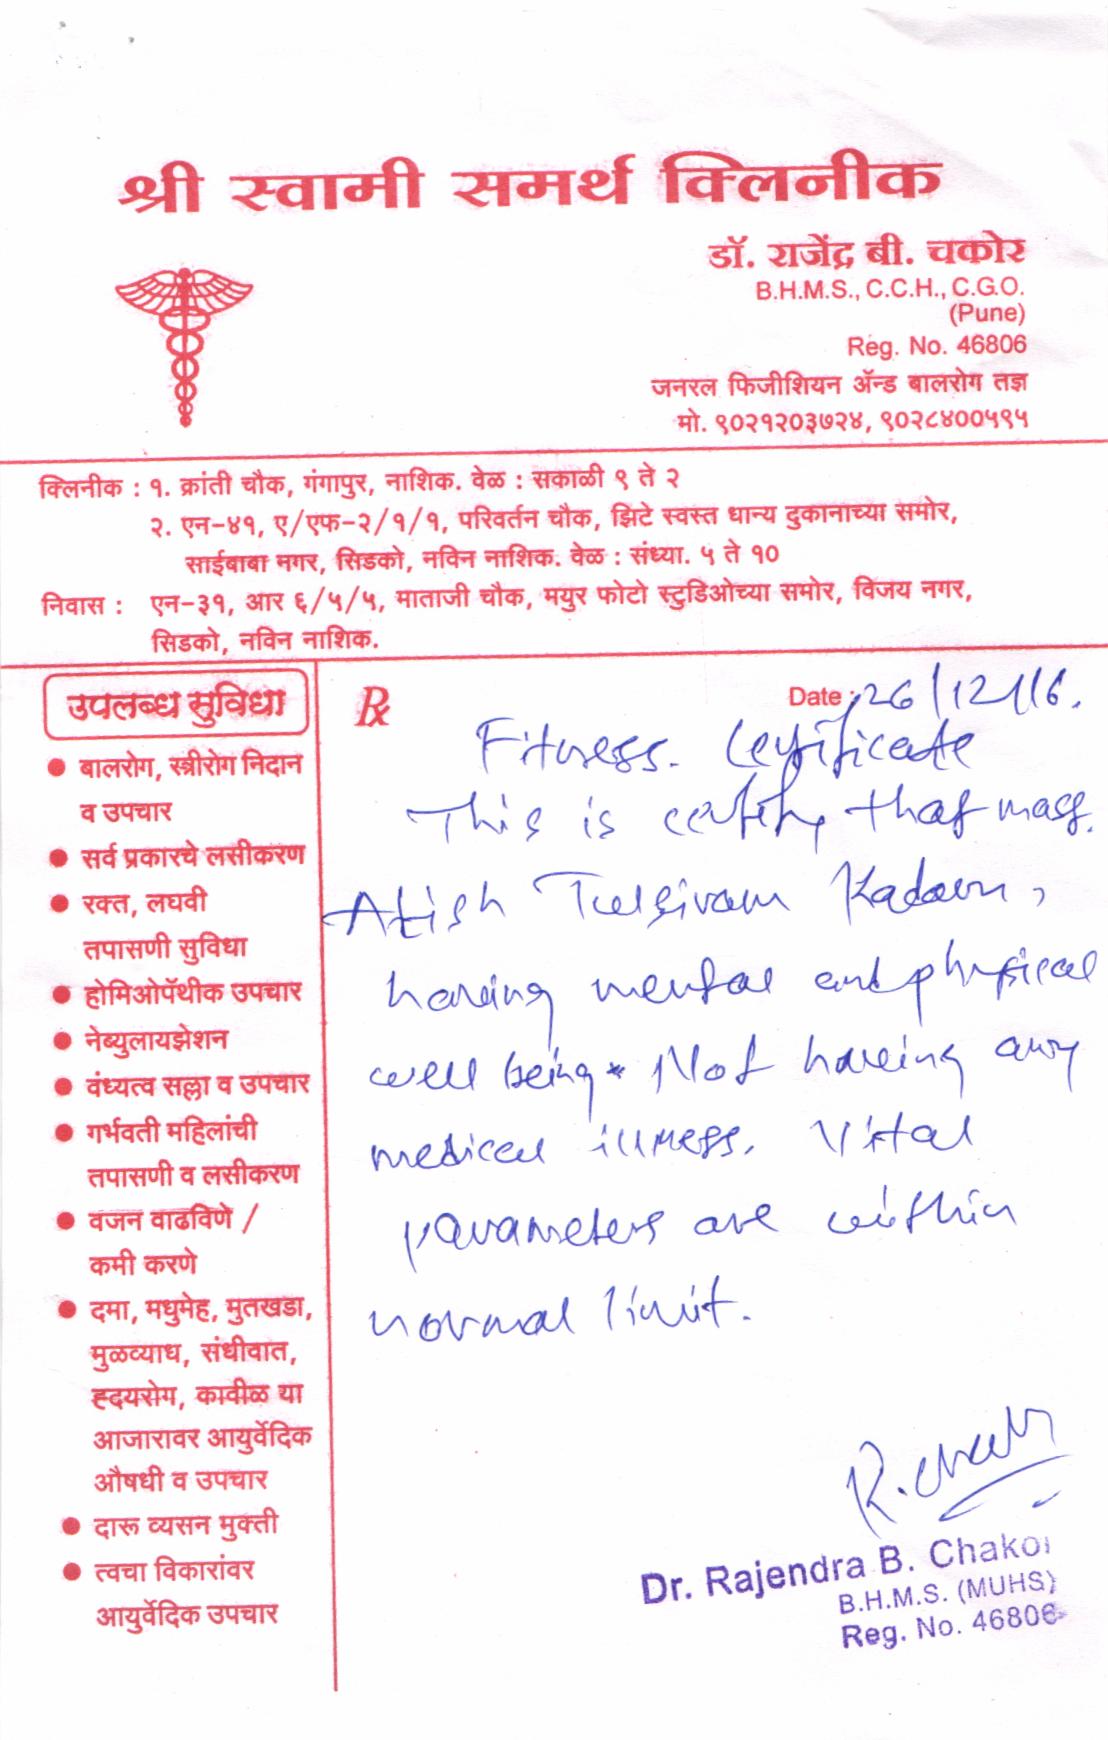 श्री स्वामी समर्थ क्लिनीक
डॉ. राजेंद्र बी. चकोर
B.H.M.S., C.C.H., C.G.O.
(Pune)
Reg. No. 46806
जनरल फिजीशियन ॲन्ड बालरोग तज्ञ
मो. ९०२१२०३७२४, ९०२८४००५९५
क्लिनीक : १. क्रांती चौक, गंगापुर, नाशिक. वेळ : सकाळी ९ ते २
२. एन-४१, ए/एफ-२/१/१, परिवर्तन चौक, झिटे स्वस्त धान्य दुकानाच्या समोर,
साईबाबा नगर, सिडको, नविन नाशिक. वेळ : संध्या. ५ ते १०
निवास : एन-३१, आर ६/५/५, माताजी चौक, मयुर फोटो स्टुडिओच्या समोर, विजय नगर,
सिडको, नविन नाशिक.
उपलब्ध सुविधा
बालरोग, स्त्रीरोग निदान
व उपचार
सर्व प्रकारचे लसीकरण
रक्त, लघवी
तपासणी सुविधा
होमिओपॅथीक उपचार
नेब्युलायझेशन
वंध्यत्व सल्ला व उपचार
गर्भवती महिलांची
तपासणी व लसीकरण
वजन वाढविणे /
कमी करणे
दमा, मधुमेह, मुतखडा,
मुळव्याध, संधीवात,
ह्दयरोग, कावीळ या
आजारावर आयुर्वेदिक
औषधी व उपचार
दारू व्यसन मुक्ती
त्वचा विकारांवर
आयुर्वेदिक उपचार
Rx
Date : 26/12/16.
Fitness. Certificate
This is certify that mast.
Atish Tulsiram Kadam,
having mental and physical
well being. Not having any
medical illness. Vital
parameters are within
normal limit.
Dr. Rajendra B. Chakor
B.H.M.S. (MUHS)
Reg. No. 46806